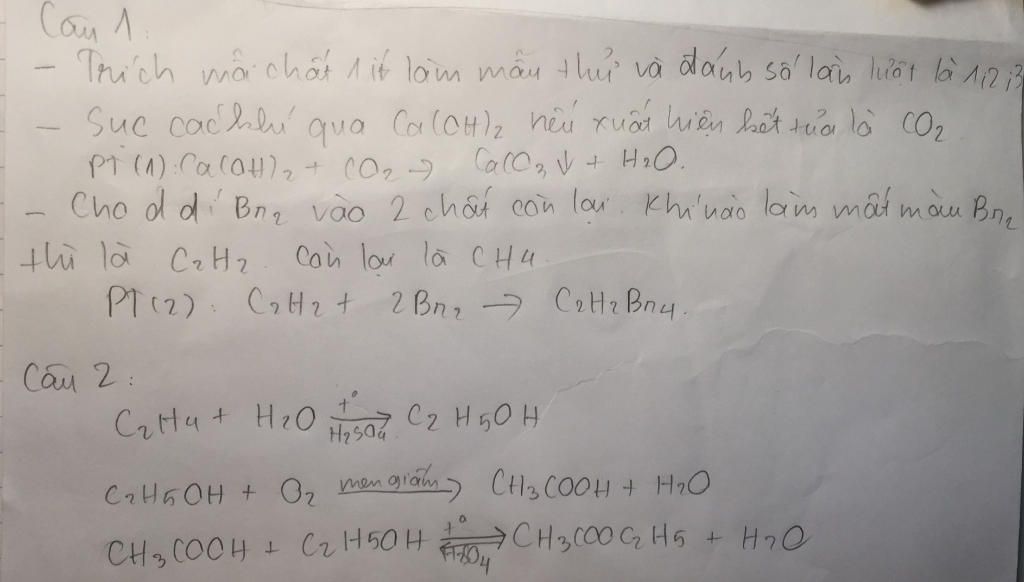 Câu 1:
- Trích mỗi chất 1 ít làm mẫu thử và đánh số lần lượt là 1,2,3
- Sục các khí qua Ca(OH)2 nếu xuất hiện kết tủa là CO2
PT(1): Ca(OH)2 + CO2 → CaCO3↓ + H2O.
- Cho d d Br2 vào 2 chất còn lại. Khí nào làm mất màu Br2
thì là C2H2. Còn lại là CH4.
PT(2): C2H2 + 2Br2 → C2H2Br4.
Câu 2:
C2H4 + H2O t° → H2SO4 C2H5OH
C2H5OH + O2 men giấm → CH3COOH + H2O
CH3COOH + C2H5OH t° ⇌ H2SO4 CH3COOC2H5 + H2O